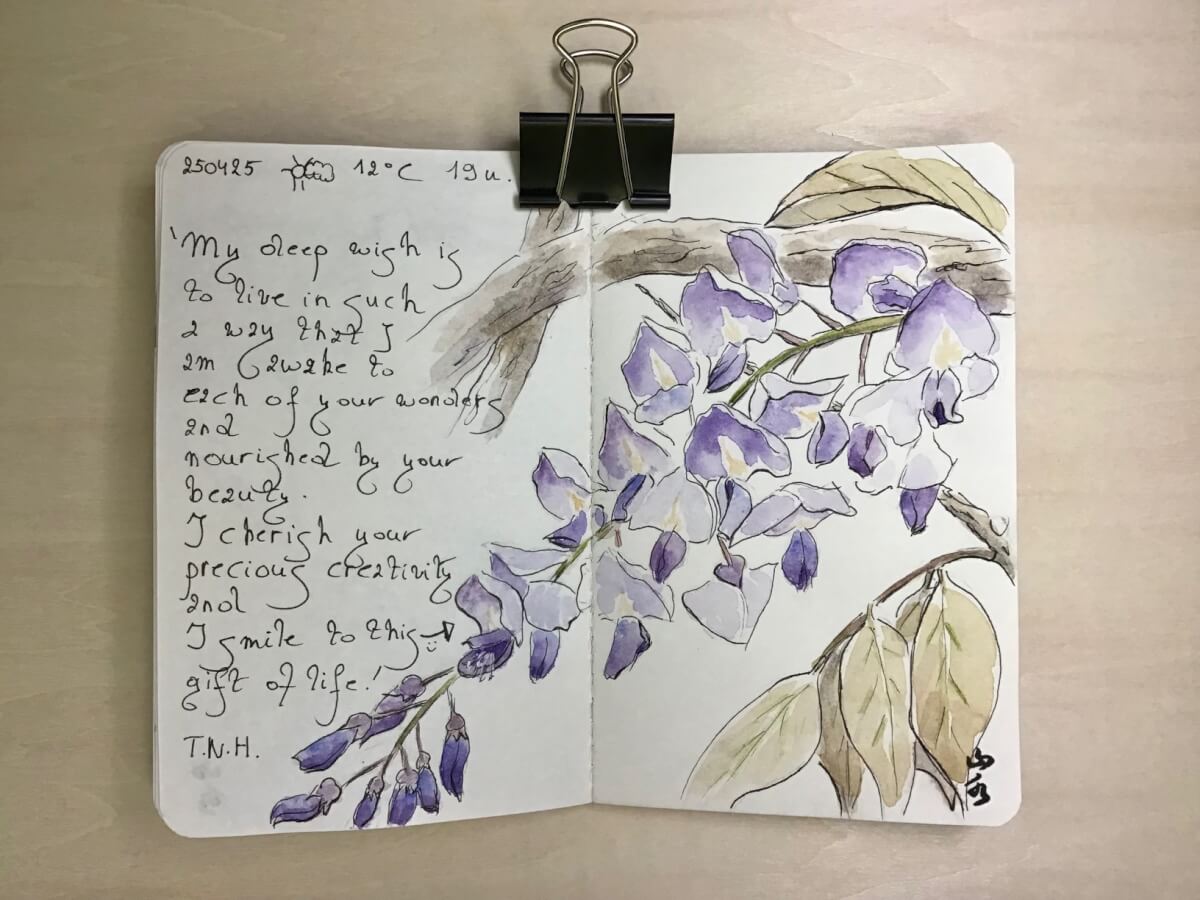 250425 12°C 19u.
'My deep wish is
to live in such
a way that I
am awake to
each of your wonders
and
nourished by your
beauty.
I cherish your
precious creativity
and
I smile to this
gift of life!'
T.N.H.
山